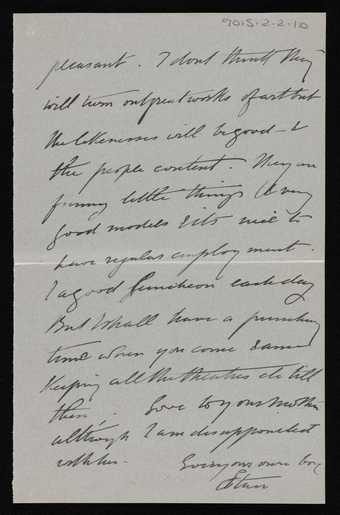 7015.2.2.10
pleasant. I dont think they
will turn out great works of art but
the likenesses will be good - &
the people content. They are
funny little things & very
good models & its nice to
have regular employment.
& a good luncheon each day
But I shall have a
time when you come & am
Keeping all the theatres etc till
then. Love to your Mother
although I am disappointed
with her.
Everyones own boy